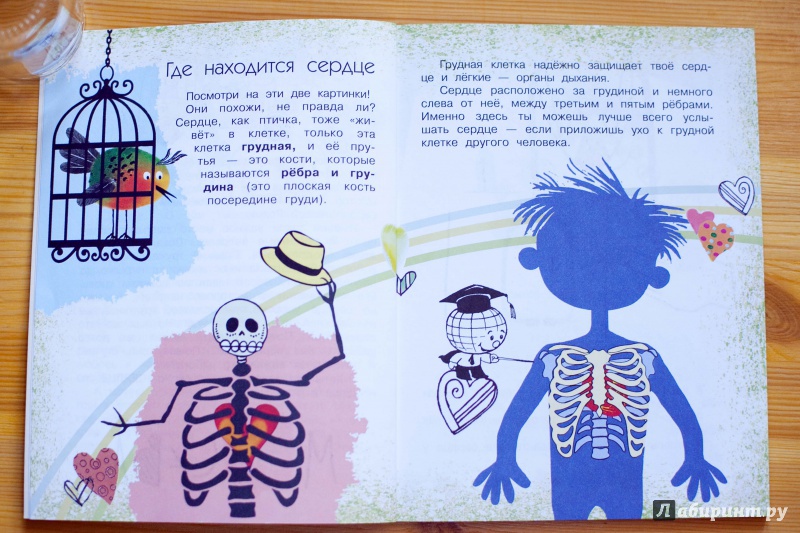 Где находится сердце
Посмотри на эти две картинки!
Они похожи, не правда ли?
Сердце, как птичка, тоже «жи-
вёт» в клетке, только эта
клетка грудная, и её пру-
тья — это кости, которые
называются рёбра и гру-
дина (это плоская кость
посередине груди).
Грудная клетка надёжно защищает твоё серд-
це и лёгкие — органы дыхания.
Сердце расположено за грудиной и немного
слева от неё, между третьим и пятым рёбрами.
Именно здесь ты можешь лучше всего услы-
шать сердце — если приложишь ухо к грудной
клетке другого человека.
Лабиринт.ру